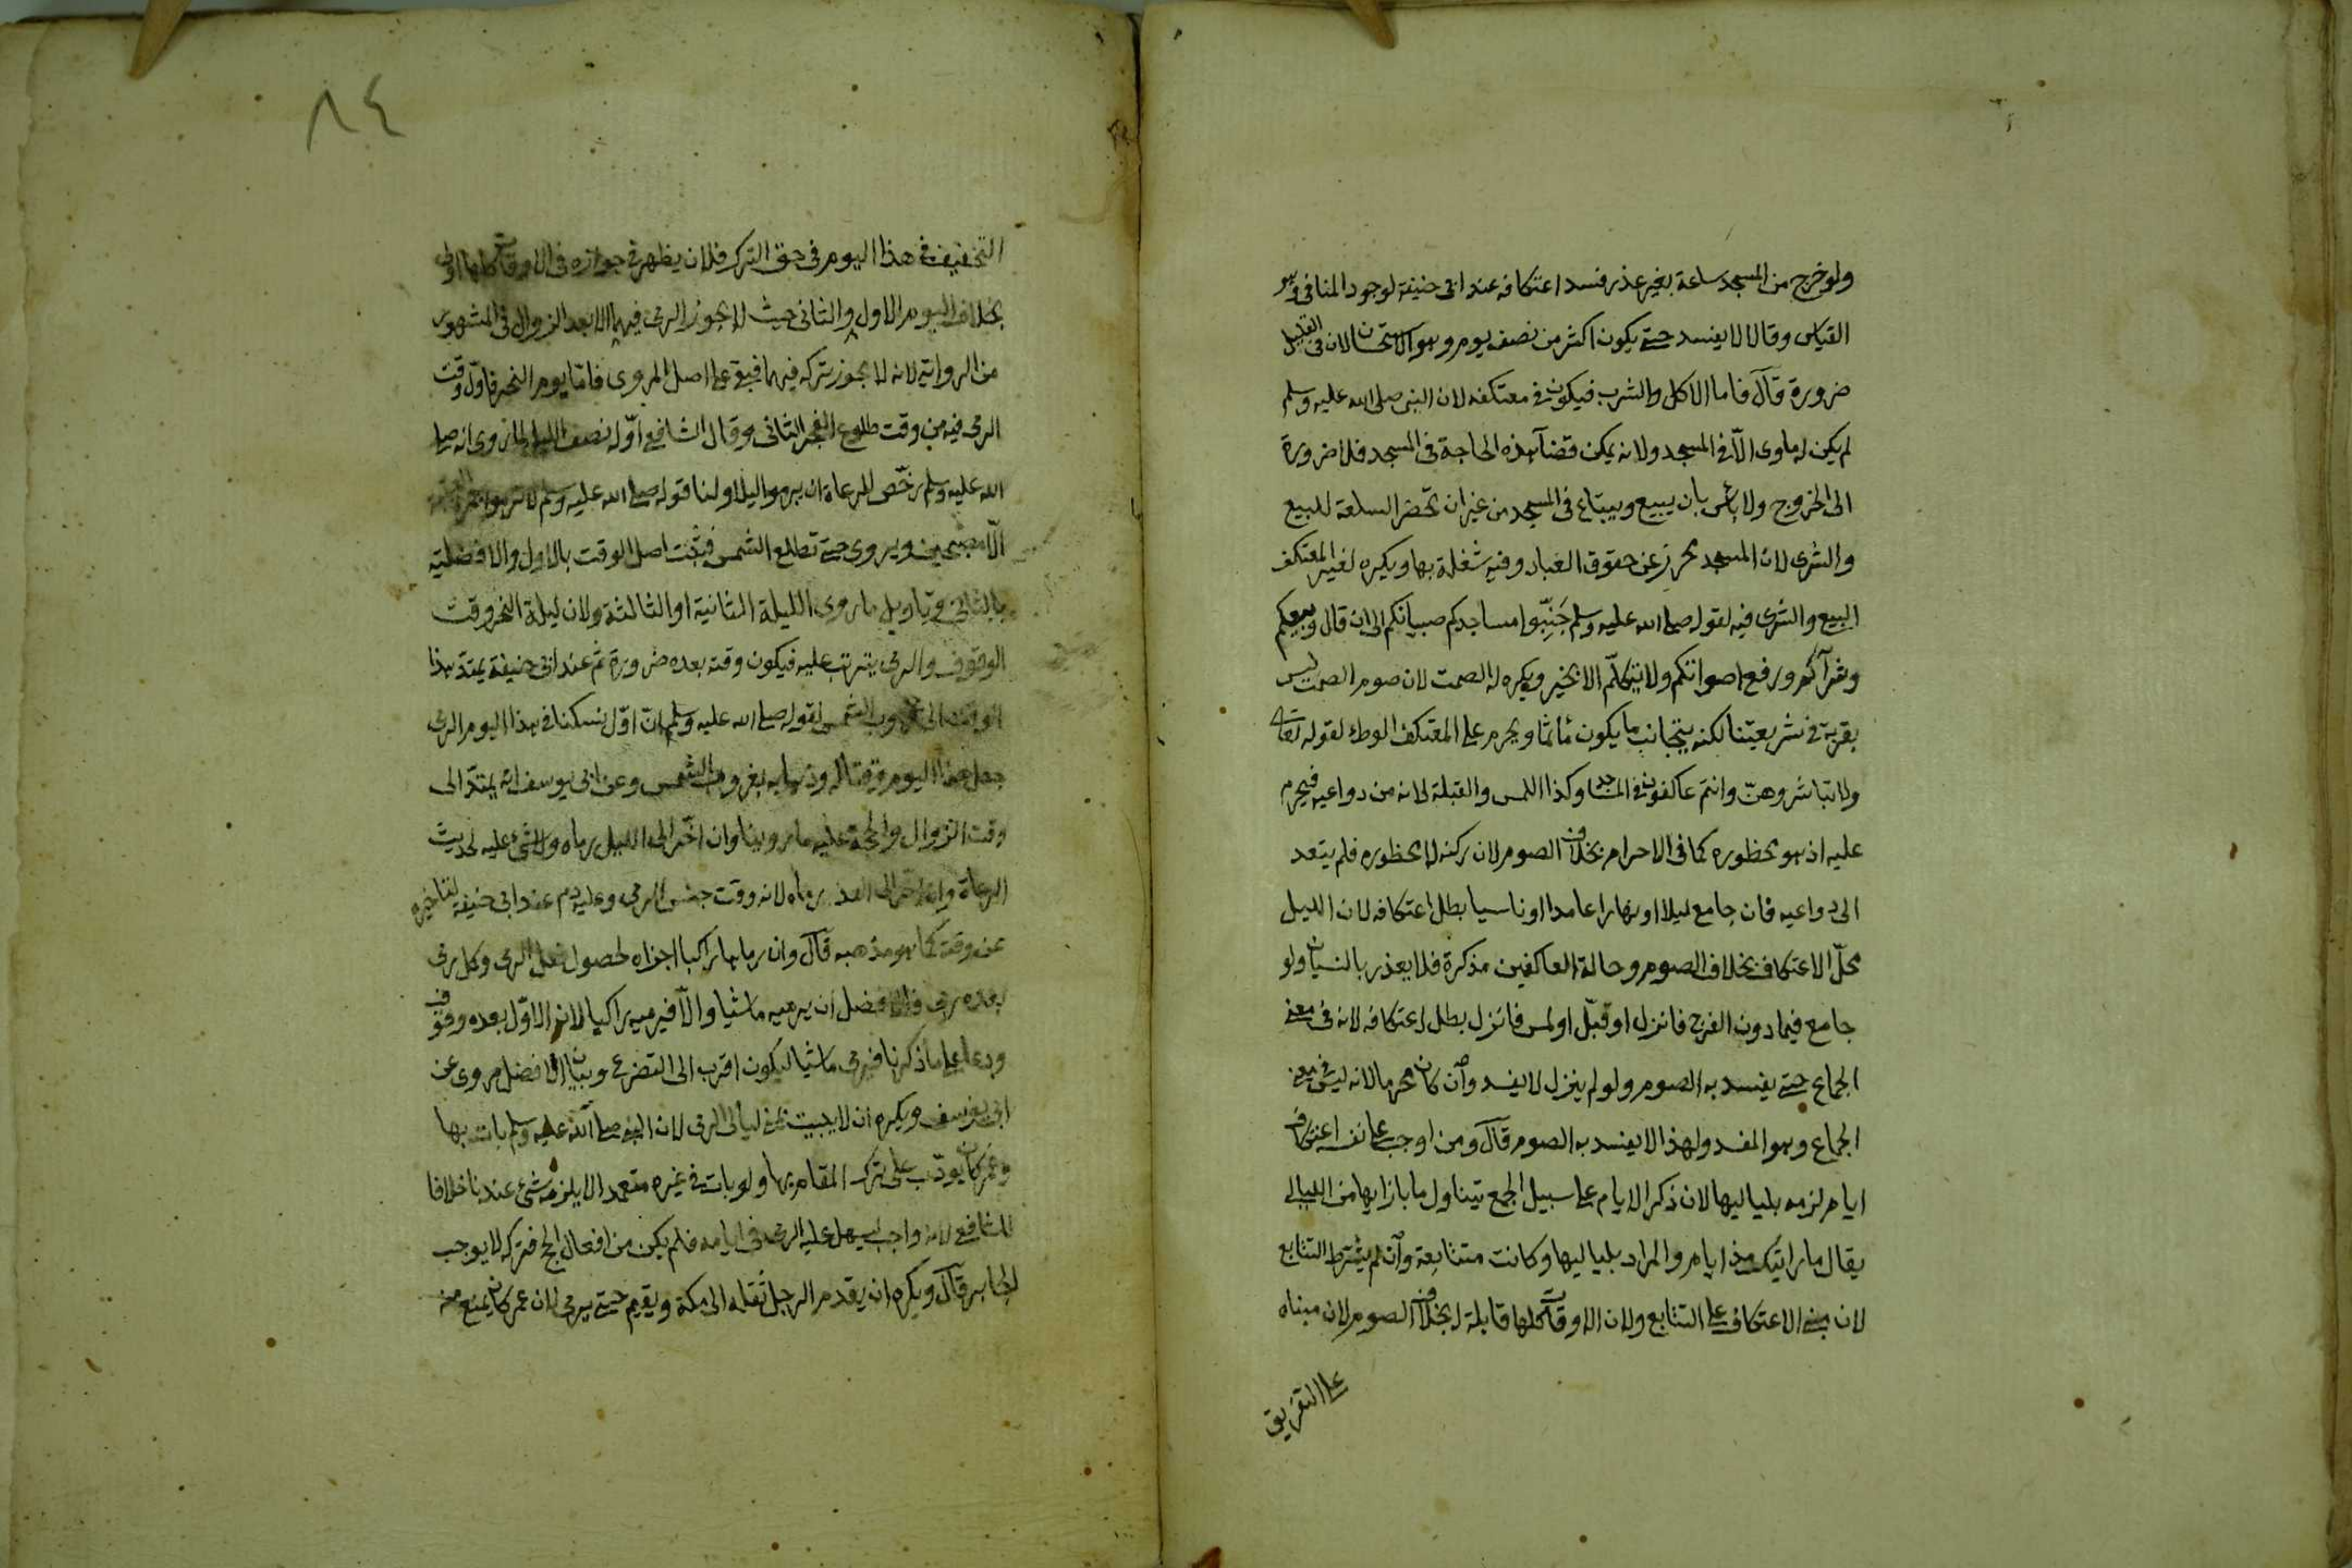 ولو خرج من المسجد ساعة بغير عذر فسد اعتكافه عند ابى حنيفة لوجود المنافى وهو
القياس وقالا لا يفسد حتى يكون اكثر من نصف يوم وهو الاستحسان لان فى القليل
ضرورة قال فاما الاكل والشرب فيكون فى معتكفه لان النبى صلى الله عليه وسلم
لم يكن له ماوى الّا فى المسجد ولانه يمكن قضآء هذه الحاجة فى المسجد فلا ضرورة
الى الخروج ولا باس بان يبيع ويبتاع فى المسجد من غير ان تحضر السلعة للبيع
والشرى لان المسجد محرز عن حقوق العباد وفيه شغلة بها ويكره لغير المعتكف
البيع والشرى فيه لقوله صلى الله عليه وسلم جَنِّبوا مساجدكم صبيانكم الى ان قال وبيعكم
وشرآكم ورفع اصواتكم ولا يتكلّم الا بخير ويكره له الصمت لان صوم الصمت ليس
بقربة فى شريعتنا لكنه يتجانب ما يكون مأثما ويحرم على المعتكف الوطء لقوله تعالى
ولا تباشروهنّ وانتم عاكفون فى المساجد وكذا اللمس والقبلة لانه من دواعيه فيحرم
عليه اذ هو محظوره كما فى الاحرام بخلاف الصوم لان ركنه لا محظوره فلم يتعد
الى دواعيه فان جامع ليلا او نهارا عامدا او ناسيا بطل اعتكافه لان الليل
محلّ الاعتكاف بخلاف الصوم وحالة العاكفين مذكرة فلا يعذر بالنسيان ولو
جامع فيما دون الفرج فانزل او قبّل او لمس فانزل بطل اعتكافه لانه فى معنى
الجماع حتى يفسد به الصوم ولو لم ينزل لا يفسد وان كان محرما لانه ليس فى معنى
الجماع وهو المفسد ولهذا لا يفسد به الصوم قال ومن اوجب على نفسه اعتكاف
ايام لزمه بلياليها لان ذكر الايام على سبيل الجمع تيناول ما بازايها من الليالى
يقال ما رايتك منذ ايام والمراد بلياليها وكانت متتابعة وان لم يشترط التتابع
لان مبنى الاعتكاف على التتابع ولان الاوقات كلها قابلة له بخلاف الصوم لان مبناه
على التفريق
٨٤
التخفيف فى هذا اليوم فى حق الترك فلان يظهر فى جوازه فى الاوقات كلها اولى
بخلاف اليوم الاول والثانى حيث لا يجوز الرمى فيهما الا بعد الزوال فى المشهور
من الرواية لانه لا يجوز تركه فيهما فبقى على اصل المروى فامّا يوم النحر فاوّل وقت
الرمى فيه من وقت طلوع الفجر الثانى وقال الشافعى اوّله نصف الليل لما روى انه صلى
الله عليه وسلم رخّص للرعاة ان يرموا ليلا ولنا قوله صلى الله عليه وسلم لا ترموا جمرة العقبة
الّا مصبحين ويروى حتى تطلع الشمس فيثبت اصل الوقت بالاول والافضلية
بالثانى وتاويل ما روى الليلة الثانية او الثالثة ولان ليلة النحر وقت
الوقوف والرمى يترتب عليه فيكون وقته بعده ضرورة ثم عند ابى حنيفة يمتد هذا
الوقت الى غروب الشمس لقوله صلى الله عليه وسلم انّ اوّل نسكنا فى هذا اليوم الرمى
جعل هذا اليوم وقتا له وذهابه بغروب الشمس وعن ابى يوسف انه يمتدّ الى
وقت الزوال والحجة عليه ما روينا وان اخّر الى الليل رماه ولا شىء عليه لحديث
الرعاة وان اخر الى الغد رماه لانه وقت جنس الرمى وعليه دم عند ابى حنيفة لتاخيره
عن وقته كما هو مذهبه قال وان رماها راكبا اجزاه لحصول فعل الرمى وكل رمى
بعده رمى فالافضل ان يرميه ماشيا والّا فيرميه راكبا لان الاوّل بعده وقوف
ودعاء على ما ذكرنا فيرمى ماشيا ليكون اقرب الى التضرع وبيان الافضل مروى عن
ابى يوسف ويكره ان لا يبيت بمنى ليالى الرمى لان النبى صلى الله عليه وسلم بات بها
وعمر كان يودّب على ترك المقام بها ولو بات فى غيره متعمدا لا يلزمه شىء عندنا خلافا
للشافعى لانه واجب ليسهل عليه الرمى فى ايامه فلم يكن من افعال الحج فتركه لا يوجب
الجابر قال ويكره ان يقدم الرجل ثقله الى مكة ويقيم حتى يرمى لان عمر كان يمنع منه